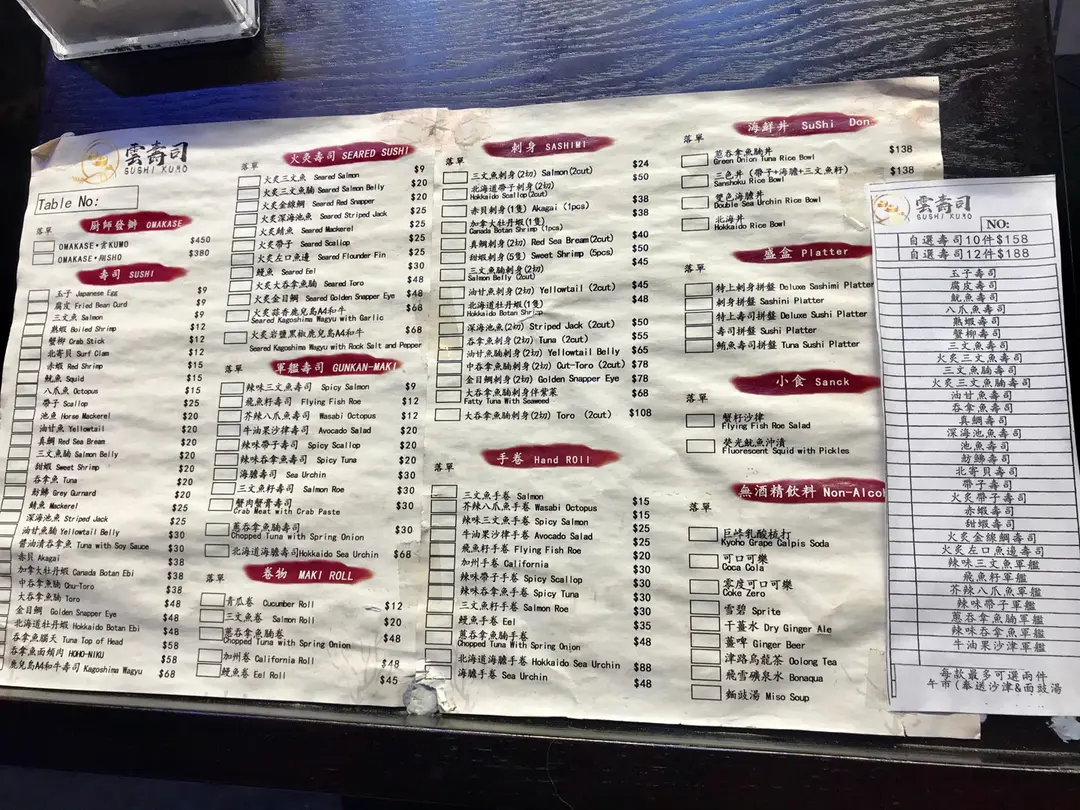 雲壽司
SUSHI KUMO
Table No:
廚師發辦 OMAKASE
落單
OMAKASE·雲KUMO $450
OMAKASE· $380
壽司 SUSHI
落單
玉子 Japanese Egg $9
腐皮 Fried Bean Curd $9
三文魚 Salmon $9
熟蝦 Boiled Shrimp $12
蟹柳 Crab Stick $12
北寄貝 Surf Clam $12
赤蝦 Red Shrimp $15
魷魚 Squid $15
八爪魚 Octopus $15
帶子 Scallop $25
池魚 Horse Mackerel $20
油甘魚 Yellowtail $20
真鯛 Red Sea Bream $20
三文魚腩 Salmon Belly $20
甜蝦 Sweet Shrimp $20
吞拿魚 Tuna $20
魴鮄 Grey Gurnard $20
鯖魚 Mackerel $25
深海池魚 Striped Jack $25
油甘魚腩 Yellowtail Belly $30
醬油漬吞拿魚 Tuna with Soy Sauce $30
赤貝 Akagai $38
加拿大牡丹蝦 Canada Botan Ebi $38
中吞拿魚腩 Chu-Toro $38
大吞拿魚腩 Toro $48
金目鯛 Golden Snapper Eye $48
北海道牡丹蝦 Hokkaido Botan Ebi $48
吞拿魚腦天 Tuna Top of Head $58
吞拿魚面頰肉 HOHO-NIKU $58
鹿兒島A4和牛壽司 Kagoshima Wagyu $68
火炙壽司 SEARED SUSHI
落單
火炙三文魚 Seared Salmon $9
火炙三文魚腩 Seared Salmon Belly $20
火炙金線鯛 Seared Red Snapper $20
火炙深海池魚 Seared Striped Jack $25
火炙鯖魚 Seared Mackerel $25
火炙帶子 Seared Scallop $25
火炙左口魚邊 Seared Flounder Fin $25
鰻魚 Seared Eel $30
火炙大吞拿魚腩 Seared Toro $48
火炙金目鯛 Seared Golden Snapper Eye $48
火炙蒜香鹿兒島A4和牛 $68
Seared Kagoshima Wagyu with Garlic
火炙岩鹽黑椒鹿兒島A4和牛 $68
Seared Kagoshima Wagyu with Rock Salt and Pepper
軍艦壽司 GUNKAN-MAKI
落單
辣味三文魚壽司 Spicy Salmon $9
飛魚籽壽司 Flying Fish Roe $12
芥辣八爪魚壽司 Wasabi Octopus $12
牛油果沙律壽司 Avocado Salad $20
辣味帶子壽司 Spicy Scallop $20
辣味吞拿魚壽司 Spicy Tuna $20
海膽壽司 Sea Urchin $30
三文魚籽壽司 Salmon Roe $30
蟹肉蟹膏壽司 $30
Crab Meat with Crab Paste
蔥吞拿魚腩壽司 $30
Chopped Tuna with Spring Onion
北海道海膽壽司Hokkaido Sea Urchin $68
卷物 MAKI ROLL
落單
青瓜卷 Cucumber Roll $12
三文魚卷 Salmon Roll $20
蔥吞拿魚腩卷 $48
Chopped Tuna with Spring Onion
加州卷 California Roll $48
鰻魚卷 Eel Roll $45
刺身 SASHIMI
落單
三文魚刺身(2切) Salmon(2cut) $24
北海道帶子刺身(2切) $50
Hokkaido Scallop(2cut)
赤貝刺身(1隻) Akagai (1pcs) $38
加拿大牡丹蝦(1隻) $38
Canada Botan Shrimp (1pcs)
真鯛刺身(2切) Red Sea Bream(2cut) $40
甜蝦刺身(5隻) Sweet Shrimp (5pcs) $50
三文魚腩刺身(2切) $45
Salmon Belly (2cut)
油甘魚刺身(2切) Yellowtail (2cut) $45
北海道牡丹蝦(1隻) $48
Hokkaido Botan Shrimp
深海池魚(2切) Striped Jack (2cut) $50
吞拿魚刺身(2切) Tuna (2cut) $55
油甘魚腩刺身(2切) Yellowtail Belly $65
中吞拿魚腩刺身(2切) Cut-Toro (2cut) $78
金目鯛刺身(2切) Golden Snapper Eye $78
大吞拿魚腩刺身伴紫菜 $68
Fatty Tuna With Seaweed
大吞拿魚腩刺身(2切) Toro (2cut) $108
手卷 Hand ROll
落單
三文魚手卷 Salmon $15
芥辣八爪魚手卷 Wasabi Octopus $15
辣味三文魚手卷 Spicy Salmon $25
牛油果沙律手卷 Avocado Salad $25
飛魚籽手卷 Flying Fish Roe $20
加州手卷 California $30
辣味帶子手卷 Spicy Scallop $30
辣味吞拿魚手卷 Spicy Tuna $30
三文魚籽手卷 Salmon Roe $30
鰻魚手卷 Eel $35
蔥吞拿魚腩手卷 $48
Chopped Tuna With Spring Onion
北海道海膽手卷 Hokkaido Sea Urchin $88
海膽手卷 Sea Urchin $48
海鮮丼 SuShi Don
落單
蔥吞拿魚腩丼 $138
Green Onion Tuna Rice Bowl
三色丼 (帶子+海膽+三文魚籽) $138
Sanshoku Rice Bowl
雙色海膽丼
Double Sea Urchin Rice Bowl
北海丼
Hokkaido Rice Bowl
盛盒 Platter
落單
特上刺身拼盤 Deluxe Sashimi Platter
刺身拼盤 Sashini Platter
特上壽司拼盤 Deluxe Sushi Platter
壽司拼盤 Sushi Platter
鮪魚壽司拼盤 Tuna Sushi Platter
小食 Sanck
落單
蟹籽沙律
Flying Fish Roe Salad
熒光魷魚沖漬
Fluorescent Squid with Pickles
無酒精飲料 Non-Alcoh
落單
巨峰乳酸梳打
Kyoho Grape Calpis Soda
可口可樂
Coca Cola
零度可口可樂
Coke Zero
雪碧 Sprite
干薑水 Dry Ginger Ale
薑啤 Ginger Beer
津路烏龍茶 Oolong Tea
飛雪礦泉水 Bonaqua
麵豉湯 Miso Soup
雲壽司
SUSHI KUMO
NO:
自選壽司10件$158
自選壽司12件$188
玉子壽司
腐皮壽司
魷魚壽司
八爪魚壽司
熟蝦壽司
蟹柳壽司
三文魚壽司
火炙三文魚壽司
三文魚腩壽司
火炙三文魚腩壽司
油甘魚壽司
吞拿魚壽司
真鯛壽司
深海池魚壽司
池魚壽司
魴鮄壽司
北寄貝壽司
帶子壽司
火炙帶子壽司
赤蝦壽司
甜蝦壽司
火炙金線鯛壽司
火炙左口魚邊壽司
辣味三文魚軍艦
飛魚籽軍艦
芥辣八爪魚軍艦
辣味帶子軍艦
蔥吞拿魚腩軍艦
辣味吞拿魚軍艦
牛油果沙津軍艦
每款最多可選兩件
午市(奉送沙津&面豉湯